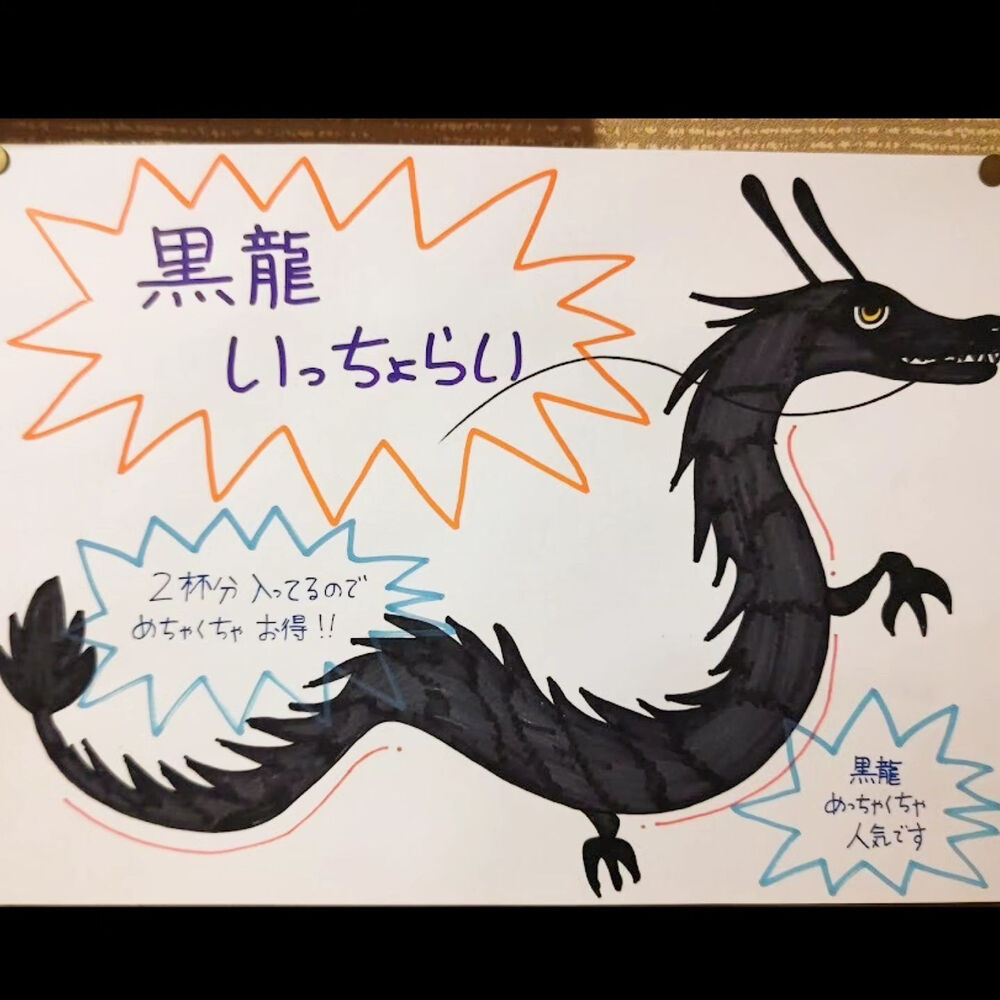 黒龍
いっちょらい
2杯分 入ってるので
めちゃくちゃ お得!!
黒龍
めっちゃくちゃ
人気です